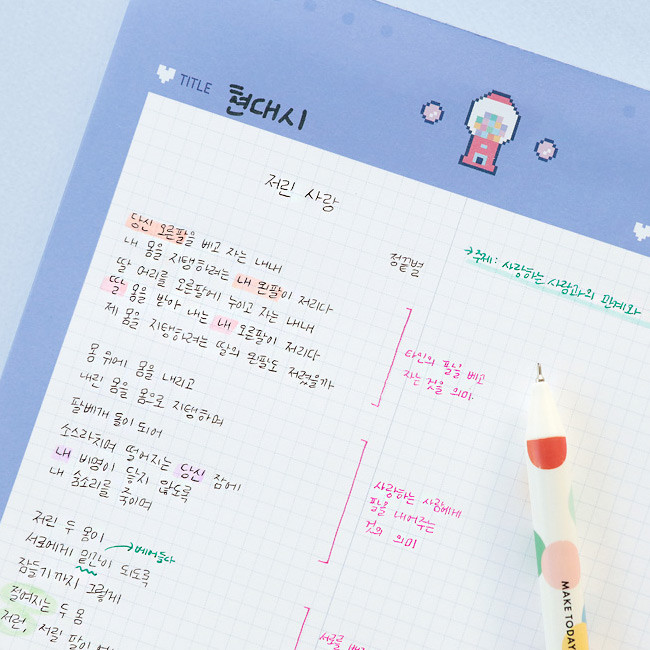 TITLE 현대시
저린 사랑
정끝별
당신 오른팔을 베고 자는 내내
내 몸을 지탱하려는 내 왼팔이 저리다
딸 머리를 오른팔에 누이고 자는 내내
딸 몸을 받아 내는 내 오른팔이 저리다
제 몸을 지탱하려는 딸의 왼팔도 저렸을까
몸 위에 몸을 내리고
내린 몸을 몸으로 지탱하며
팔베개 돌이 되어
소스라치며 떨어지는 당신 잠에
내 비명이 닿지 않도록
내 숨소리를 죽이며
저린 두 몸이
서로에게 밑간이 되도록
잠들기까지 그렇게
절여지는 두 몸
저런, 저릴 팔이
→주제: 사랑하는 사람과의 관계와
타인의 팔을 베고
자는 것을 의미.
사랑하는 사람에게
팔을 내어주는
것의 의미
→베어들다
서로를
MAKE TODAY